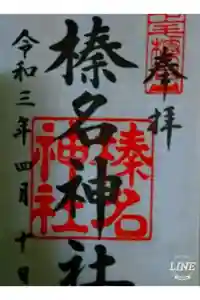 奉拝
榛名神社
榛名
神社
令和三年四月十日
LINE